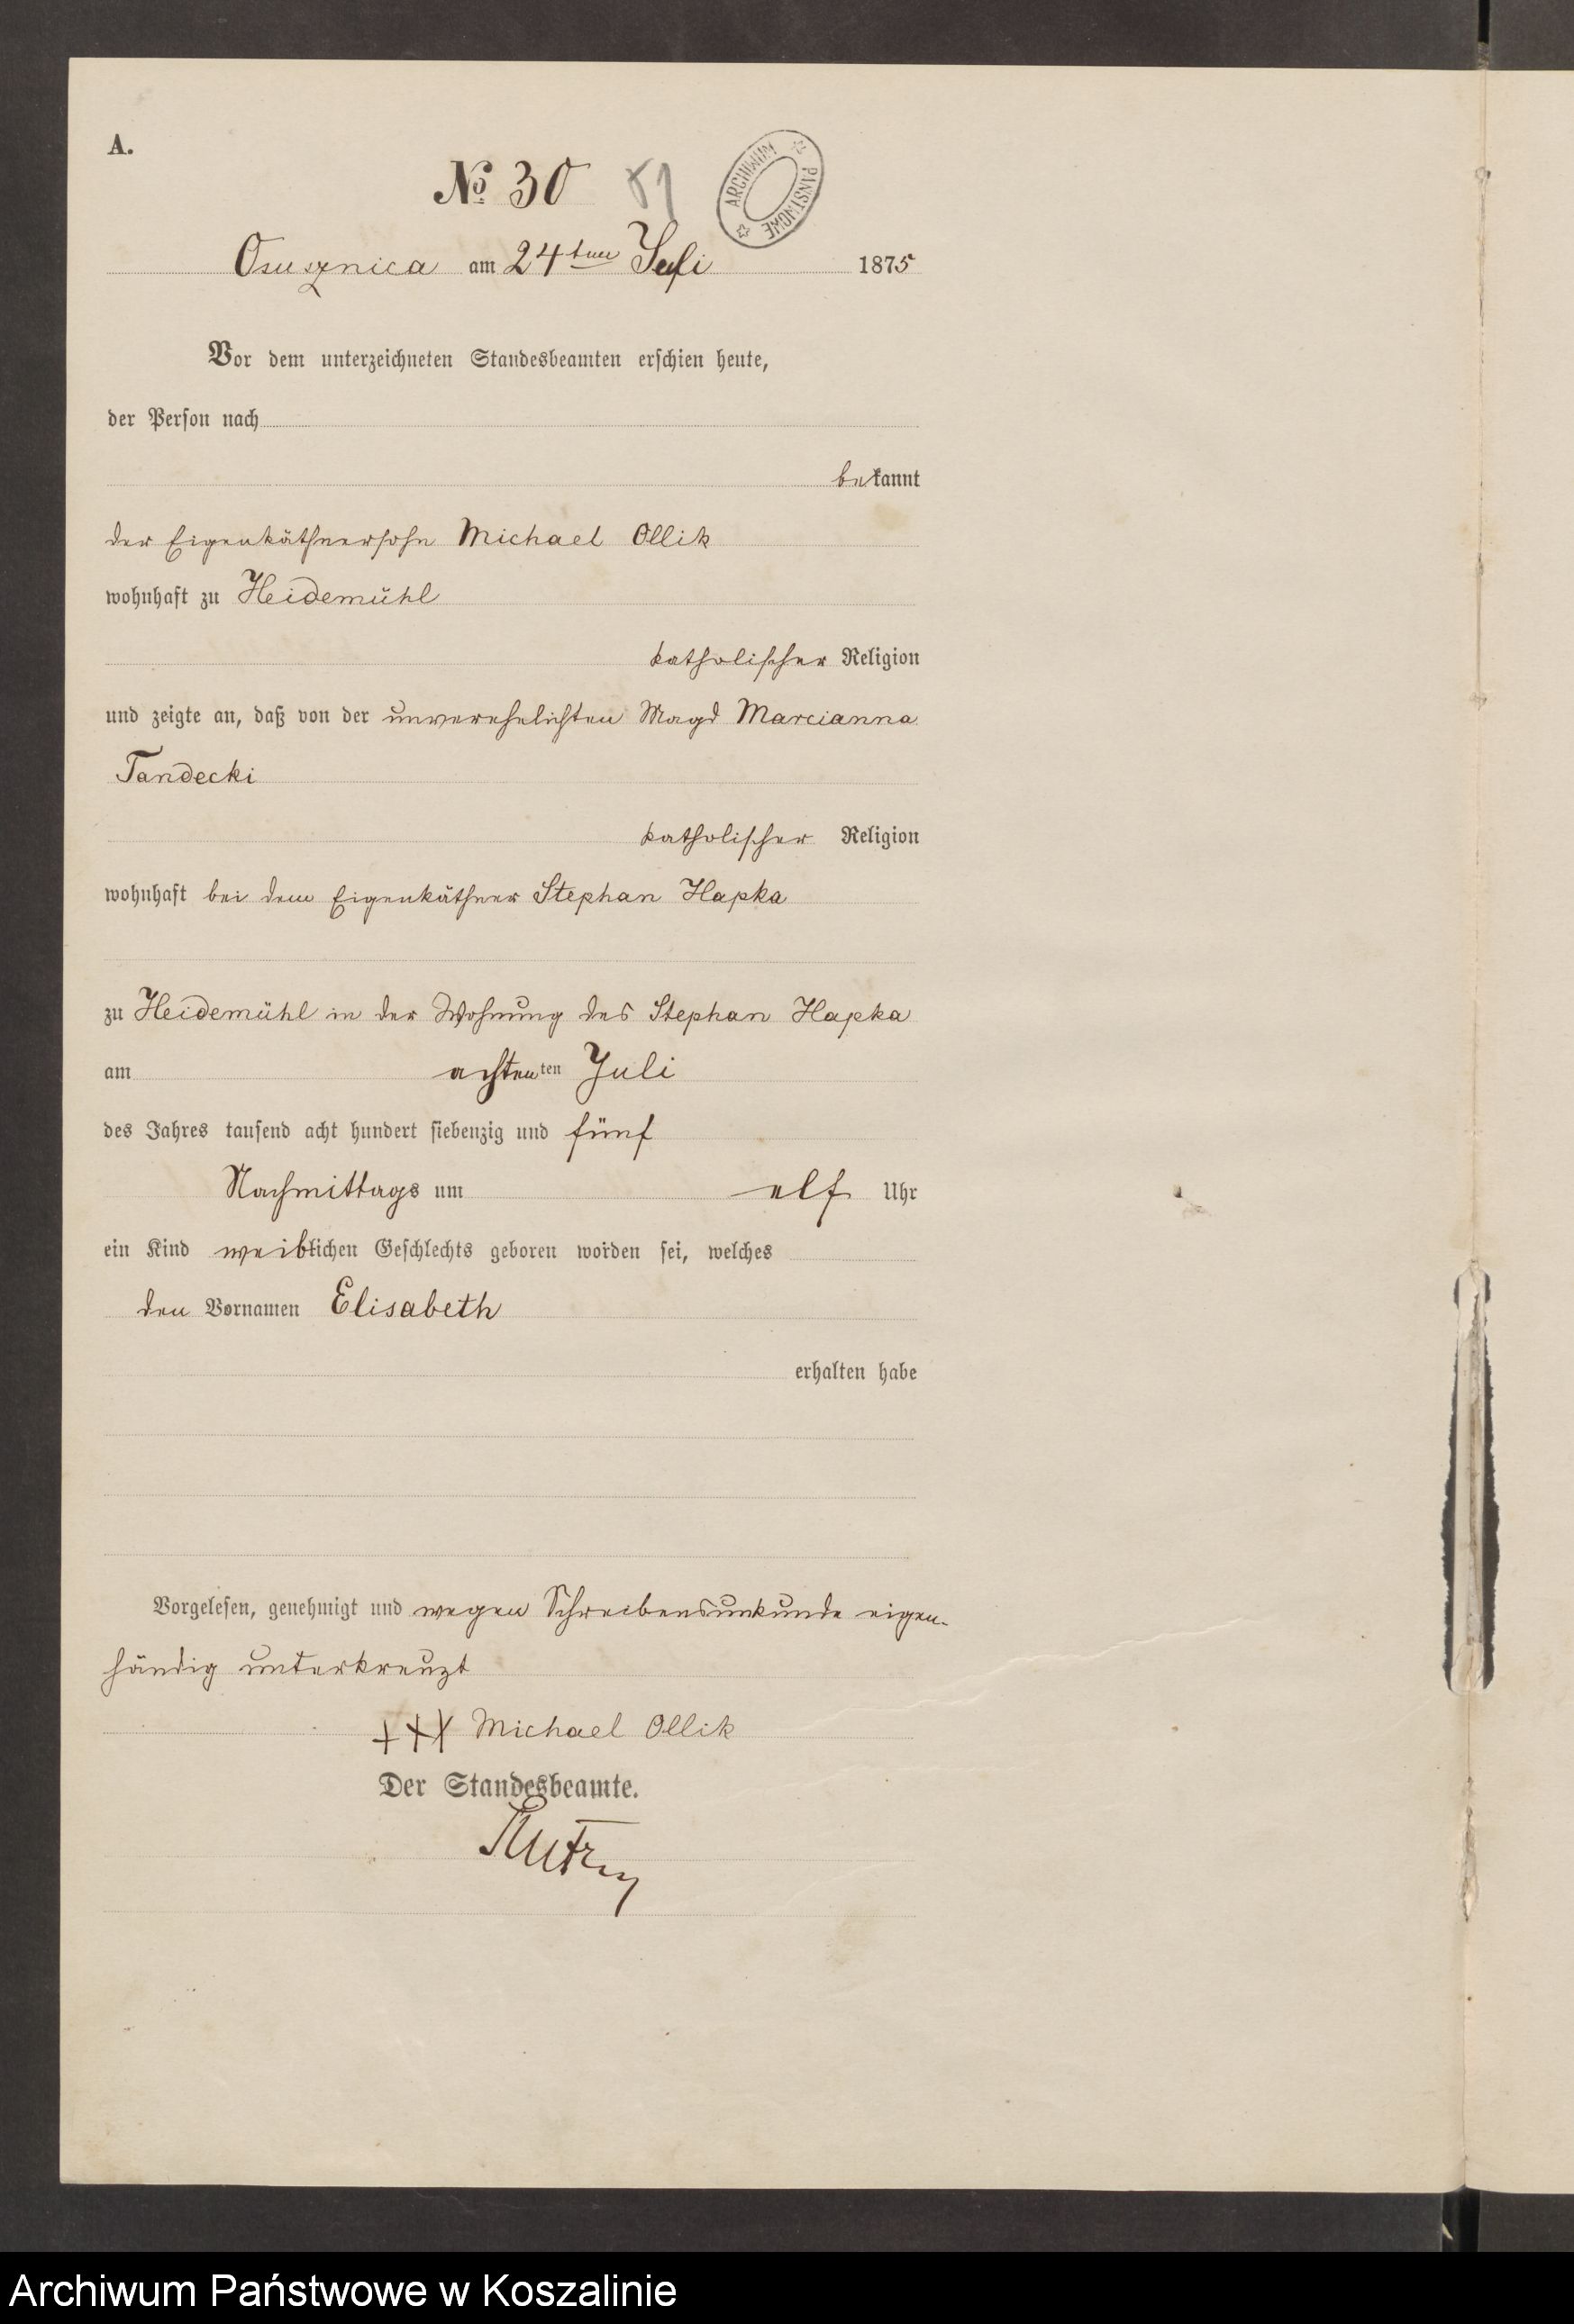 A.
№ 30 81
ARCHIWUM PAŃSTWOWE
Osusznica am 24ten Juli 1875
Vor dem unterzeichneten Standesbeamten erschien heute,
der Person nach
bekannt
der Eigenkäthnersohn Michael Ollik
wohnhaft zu Heidemühl
katholischer Religion
und zeigte an, daß von der unverehelichten Magd Marcianna
Tandecki
katholischer Religion
wohnhaft bei dem Eigenkäthner Stephan Hapka
zu Heidemühl in der Wohnung des Stephan Hapka
am achten ten Juli
des Jahres tausend acht hundert siebenzig und fünf
Nachmittags um elf Uhr
ein Kind weiblichen Geschlechts geboren worden sei, welches
den Vornamen Elisabeth
erhalten habe
Vorgelesen, genehmigt und wegen Schreibensunkunde eigen-
händig unterkreuzt
+++ Michael Ollik
Der Standesbeamte.
Archiwum Państwowe w Koszalinie